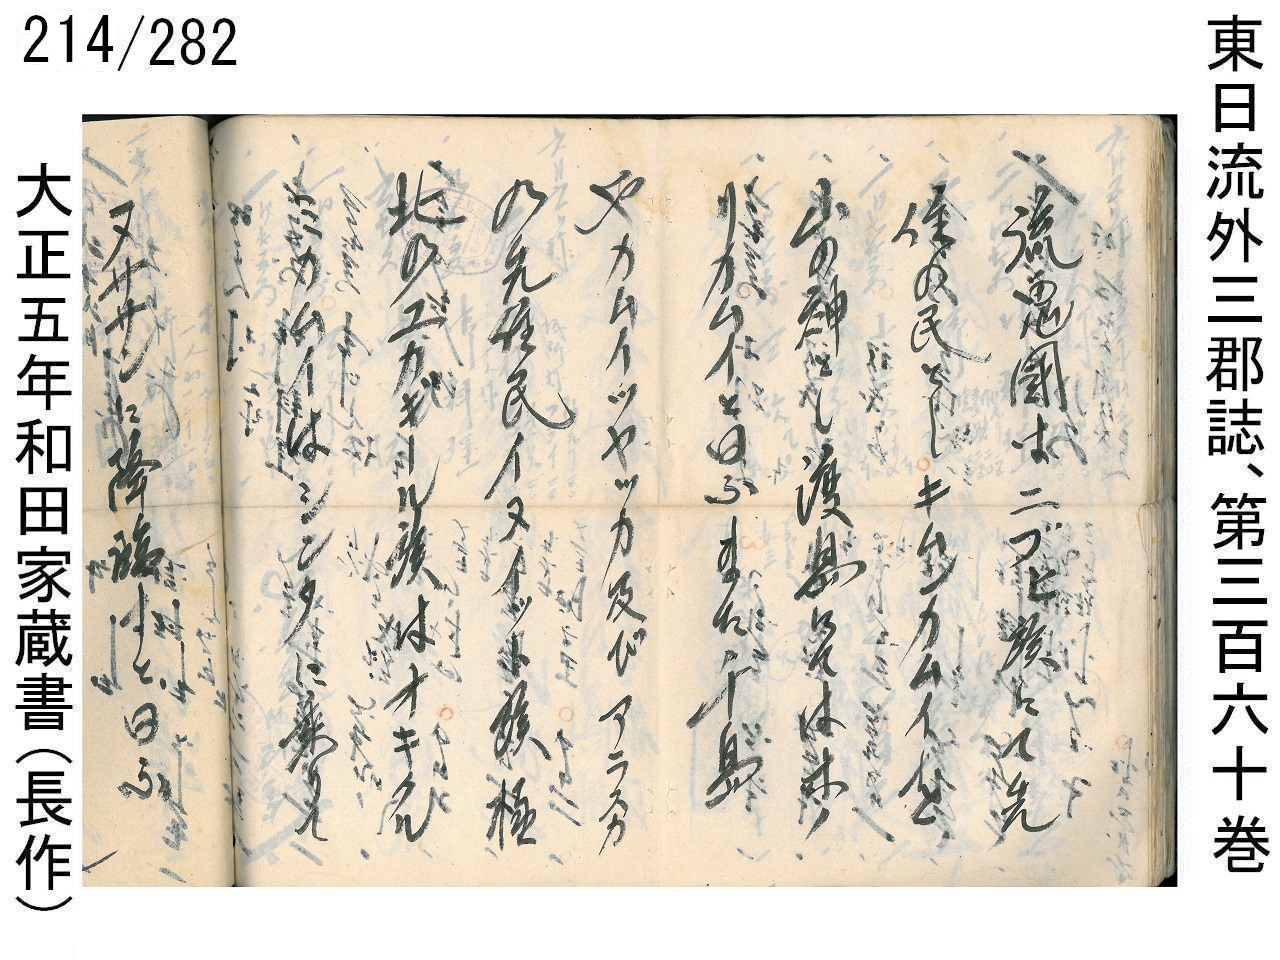 214/282
東日流外三郡誌、第三百六十巻
流鬼國はニブヒ族にて先
住の民とし キムンカムイ 
山の神とし渡島にては木ノ
リカムイと曰ふ また千島
ヤカムイツヤッカ及び アラスカ
の先住民イヌイット族 極
北のエカギール族はオキクル
ミカムイはシンタに乗りて
ヌササンに降臨すと曰ふ
大正五年和田家蔵書(長作)